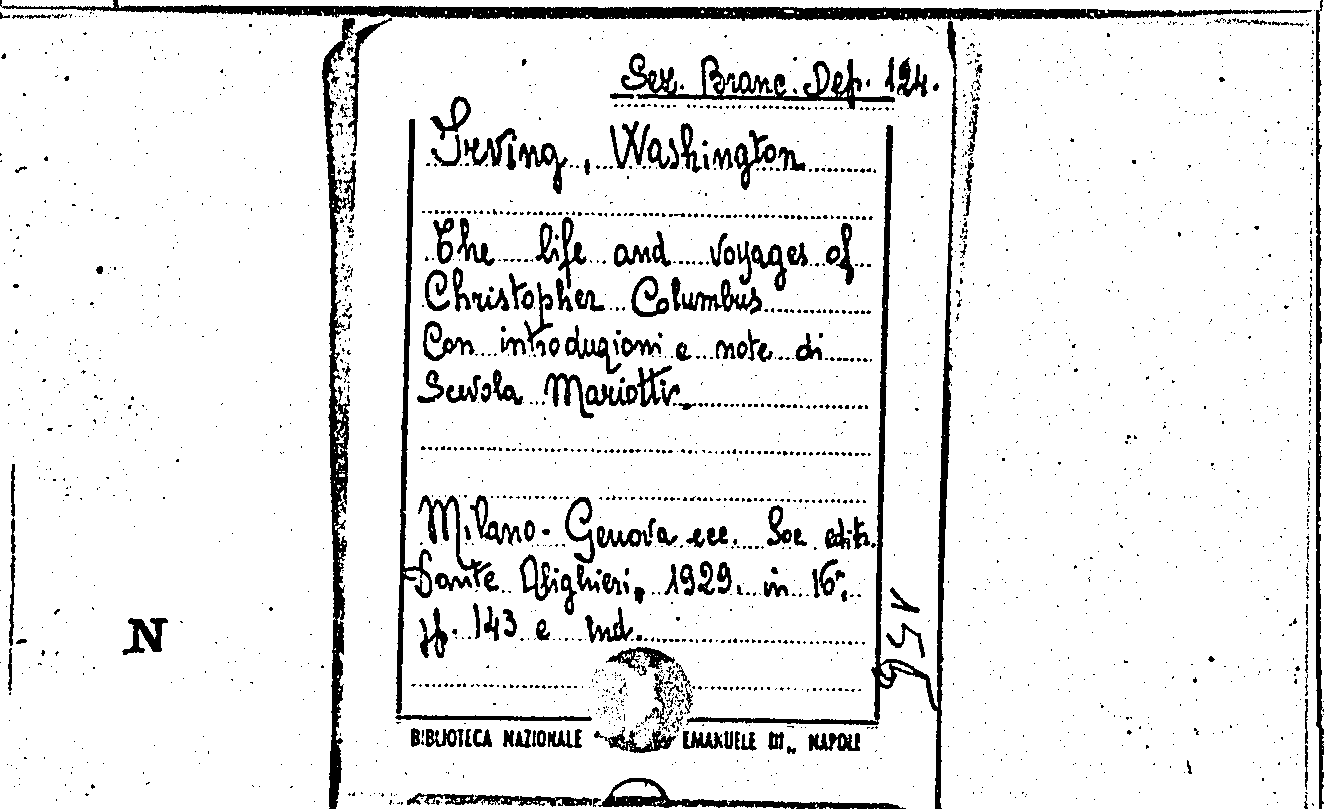 Sez. Branc. Dep. 124.
Irving, Washington
The life and voyages of
Christopher Columbus
Con introduzioni e note di
Scevola Mariotti.
Milano - Genova ecc. Soc. edit.
Dante Alighieri, 1929. in 16°.
pp. 143 e Ind.
N
BIBLIOTECA NAZIONALE EMANUELE III„ NAPOLI